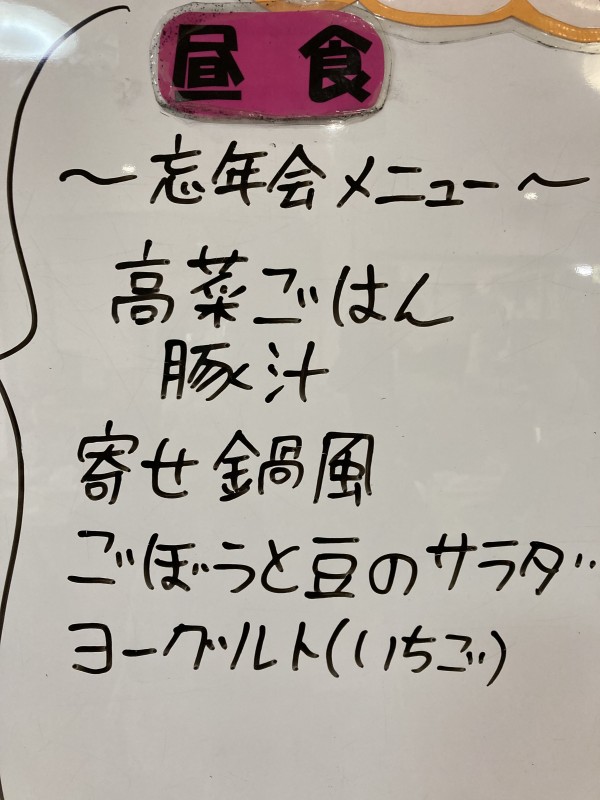 昼食
〜忘年会メニュー〜
高菜ごはん
豚汁
寄せ鍋風
ごぼうと豆のサラダ
ヨーグルト(いちご)